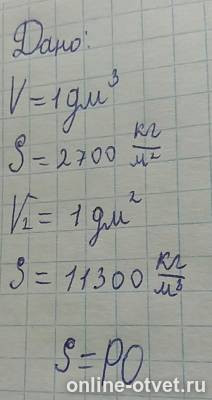 Дано:
V = 1 дм³
S = 2700 кг/м²
V₂ = 1 дм²
S = 11300 кг/м³
S = PO
online-otvet.ru